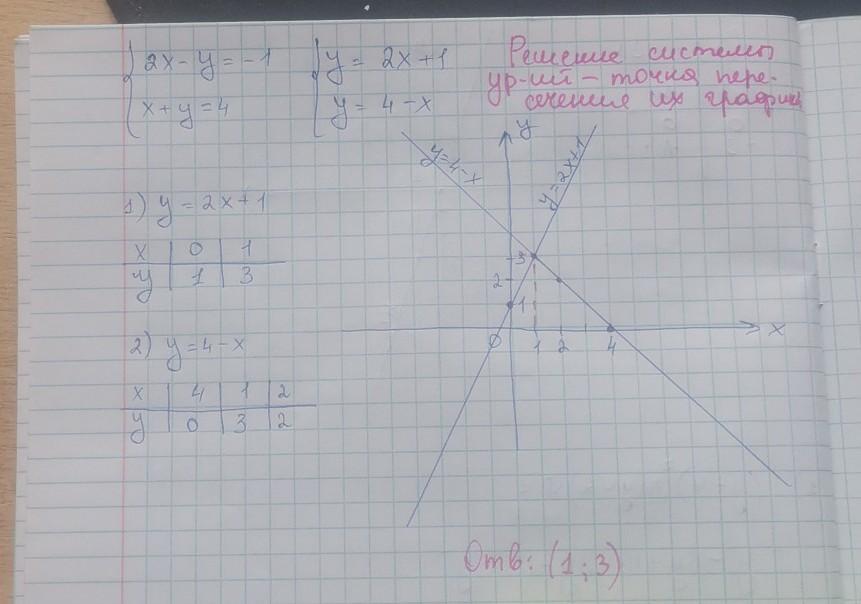 2x - y = -1
x + y = 4
y = 2x + 1
y = 4 - x
Решение системы
ур-ий - точка пере-
сечения их графика
1) y = 2x + 1
x 0 1
y 1 3
2) y = 4 - x
x 4 1 2
y 0 3 2
y
y = 4 - x
y = 2x + 1
3
2
1
0 1 2 4 x
Отв: (1; 3)